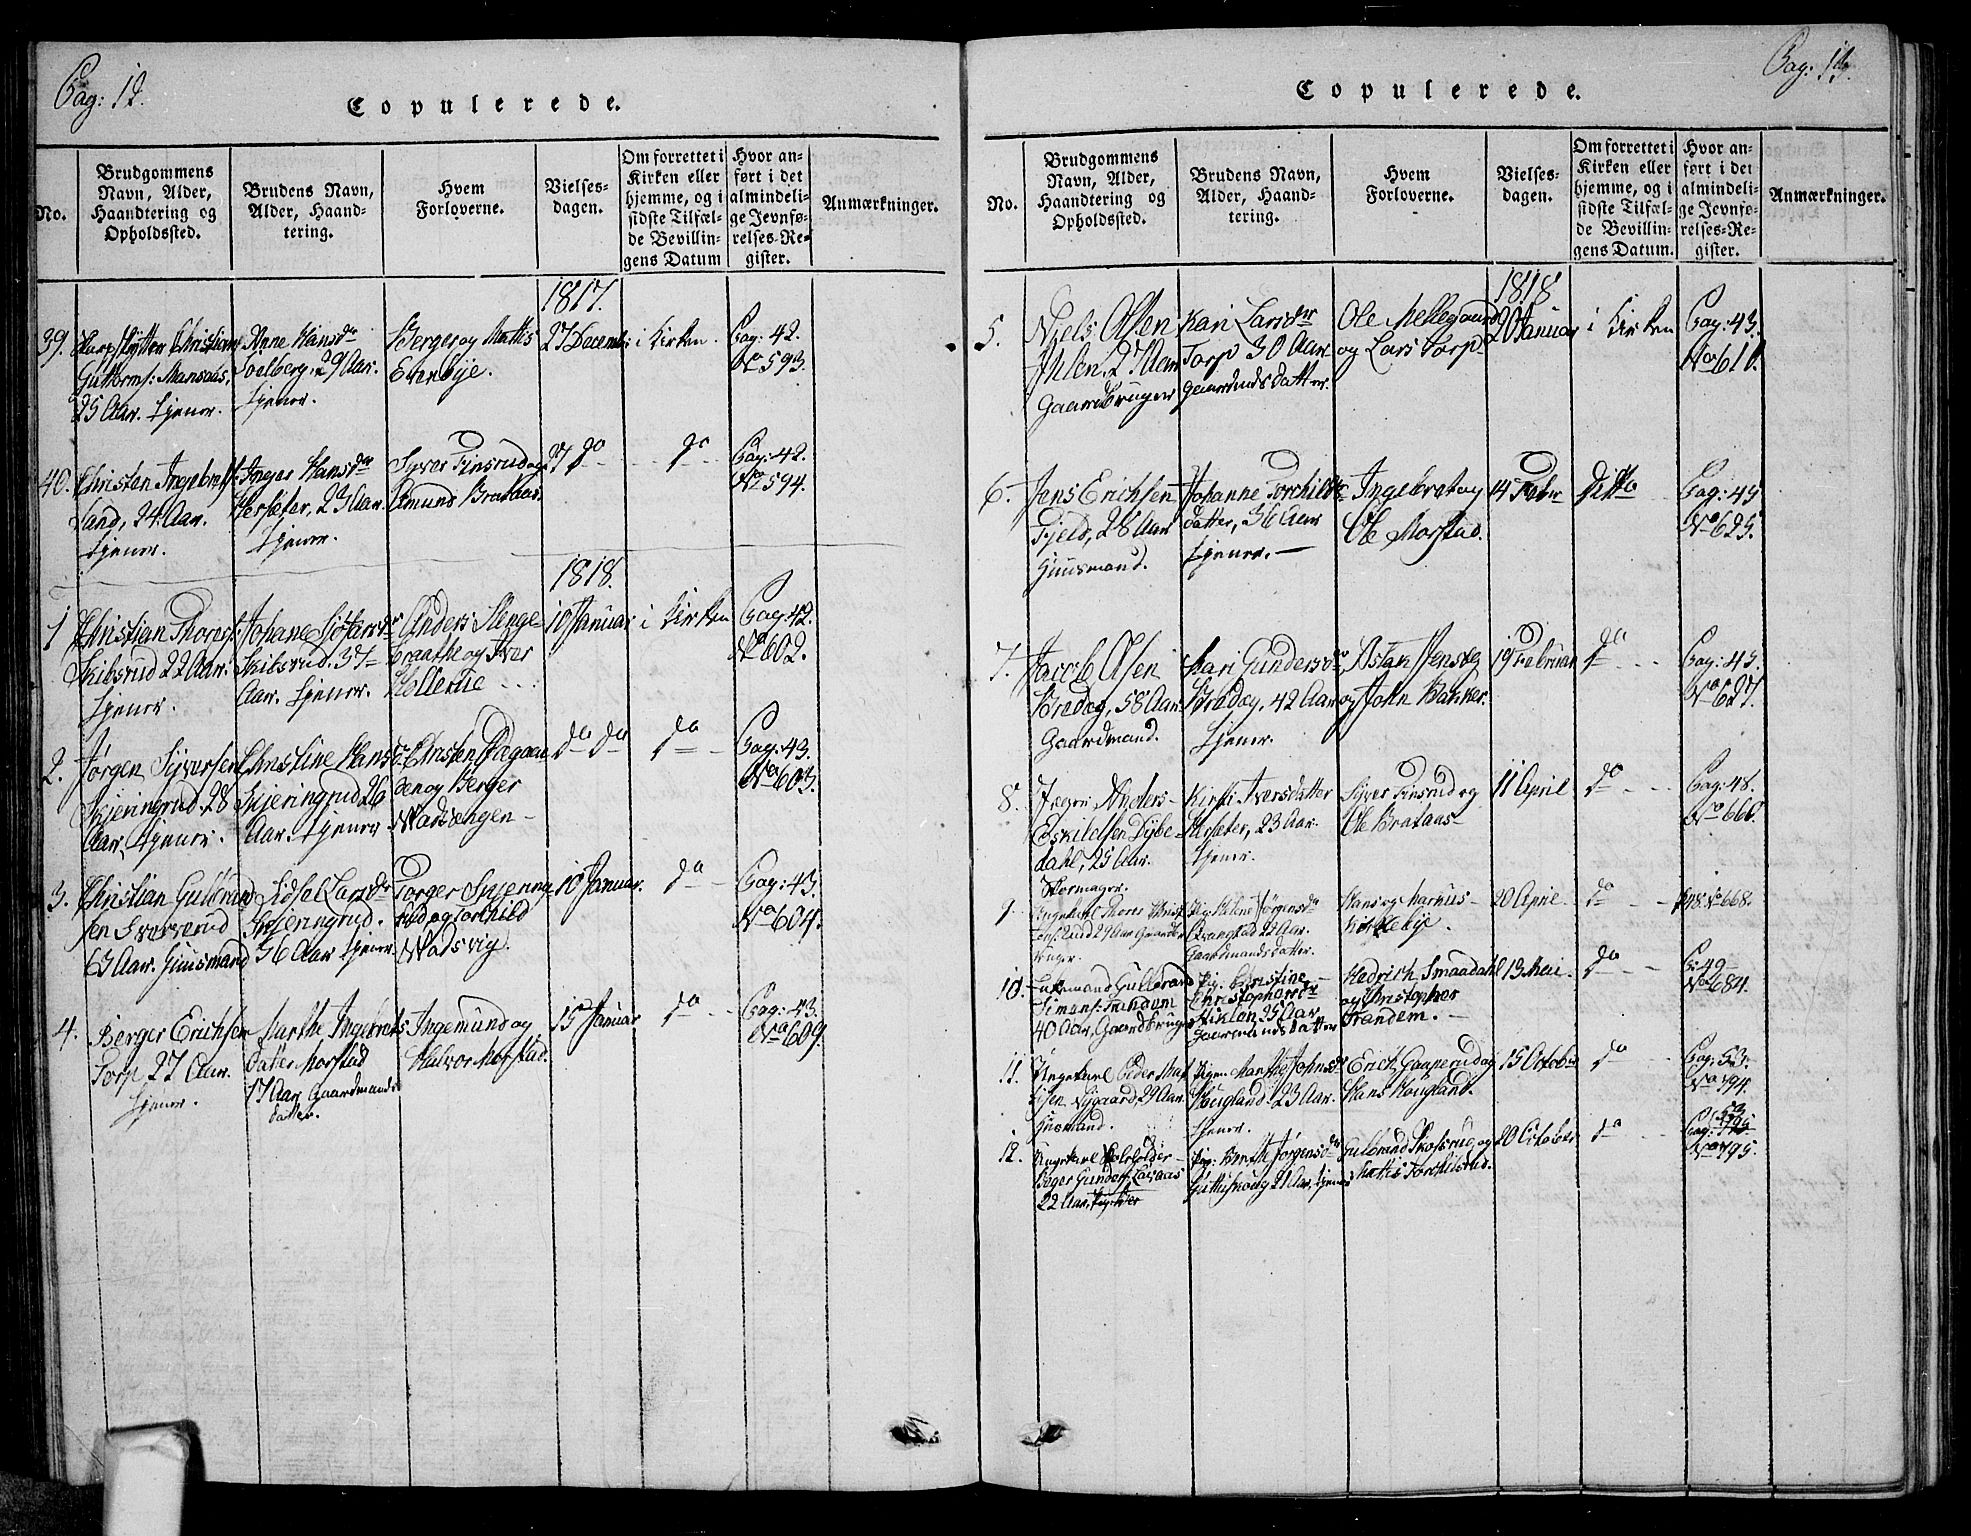 Pag: 12.
Copulerede.
No.
Brudgommens
Navn, Alder,
Haandtering og
Opholdssted.
Brudens Navn,
Alder, Haand-
tering.
Hvem
Forloverne.
Vielses-
dagen.
Om forrettet i
Kirken eller
hjemme, og i
sidste Tilfæl-
de Bevillin-
gens Datum
Hvor an-
ført i det
almindeli-
ge Jevnfø-
relses-Re-
gister.
Anmærkninger.
1817.
39.
Christian
Guttorms: Mansaas,
25 Aar. tjener.
Anne Hansdr
Solberg, 29 Aar.
tjener.
Berger og Mathis
Enebye.
27 Decemb:
i Kirken.
Pag: 42.
No 593.
40.
Christen Ingebrets:
Sand, 24 Aar.
tjener.
Inger Hansdr
Herfæter, 23 Aar.
tjener.
Syver Finsrud og
Amund Brataas.
27 do
do
Pag: 42.
No 594.
1818.
1
Christian Thores:
Skibsrud 22 Aar.
tjener.
Johane
Skibsrud. 37
Aar. tjener.
Anders Slenge-
braathe og Iver
10 Januar
i Kirken
Pag: 42.
No 602.
2.
Jørgen Syversen
Skjeringrud 28
Aar, tjener.
Christine Hansdr
Skjeringrud 26
Aar. tjener
Christen
og Berger
Wadsengen
do do
do
Pag: 43.
No 603.
3.
Christian Gulbrand
sen Sververud
63 Aar. Huusmand
Sidsel Larsdr
Skjeringrud.
36 Aar tjener.
Torger Skjering
rud og Torchild
Wadsvig
10 Januar.
do
Pag: 43.
No 604.
4.
Berger Erichsen
Torp 27 Aar.
tjener.
Marthe Ingebrets
datter Morstad
17 Aar Gaardmands
datter.
Ingemund og
Halvor Morstad.
15 Januar
do
Pag: 43.
No 609.
Pag: 13.
Copulerede.
No.
Brudgommens
Navn, Alder,
Haandtering og
Opholdssted.
Brudens Navn,
Alder, Haand-
tering.
Hvem
Forloverne.
Vielses-
dagen.
Om forrettet i
Kirken eller
hjemme, og i
sidste Tilfæl-
de Bevillin-
gens Datum.
Hvor an-
ført i det
almindeli-
ge Jevnfø-
relses-Re-
gister.
Anmærkninger.
1818
5.
Niels Olsen
Ihlen, 27 Aar
Gaardbruger
Kari Larsdr
Torp 30 Aar
Gaardmds datter.
Ole Mellegaard
og Lars Torp
20 Januar
i Kirken
Pag: 43.
No 610.
6.
Jens Erichsen
Fjeld, 28 Aar
Huusmand.
Johanne Torchilds
datter, 36 Aar
tjener.
Ingebret og
Ole Morstad.
14 Febr
Ditto
Pag: 45
No 625.
7.
Jacob Olsen
Bredag, 58 Aar.
Gaardmand.
Kari Gundersdr
Bredag, 42 Aar
tjener.
og John Bakker.
19 Februar
do
Pag: 45.
No 627.
8.
Anders
Eskildsen Dybe-
dahl, 25 Aar.
Skomager.
Kirsti Iversdatter
Herfæter, 23 Aar.
tjener.
Syver Finsrud og
Ole Brataas
11 April
do
Pag: 48.
No 666.
9
Ungekarl Thores
29 Aar Gaardb
ruger.
Pig: Helene Jørgensdr
22 Aar.
Gaardmandsdatter.
Hans og Marcus
Kirkebye.
20 April
do
P: 48. No 668.
10.
Enkemand Gulbrand
Simens: Trandum
40 Aar, Gaardbruger
Pig. Christine
Christophersdr
25 Aar
Gaardmandsdatter
Smaadahl
og Christopher
Trandem.
13 Mai.
do
P: 49
No 684.
11.
Ungekarl Peder
Nygaard, 29 Aar.
Huusmand.
Pigen Marthe Johnsdr
Hougland 23 Aar.
tjener.
Erich Gauperud og
Hans Hougland.
15 October
do
Pag: 53.
No 794.
12.
Ungekarl
Gunders:
22 Aar.
Pig: Berthe Jørgensdr
21 Aar, tjener
Gulbrand Skolsrud og
Mathis Torchilsrud.
20 October
do
53
Pag:
No 795.